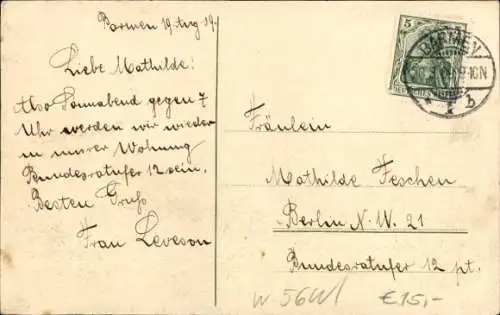 Barmen 19. Aug 19.
Liebe Mathilde!
Also Sonnabend gegen 7
Uhr werden wir wieder
in unsrer Wohnung
Bundesratufer 12 sein.
Besten Gruß
Frau Leveson
5
BARMEN
10N
b
Fräulein
Mathilde Feschen
Berlin N.W. 21
Bundesratufer 12 pt.
€15,-